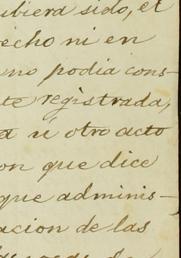 ubiera sido, el
echo ni en
no podia cons-
te registrada,
a u otro acto
on que dice
que adminis-
acion de las